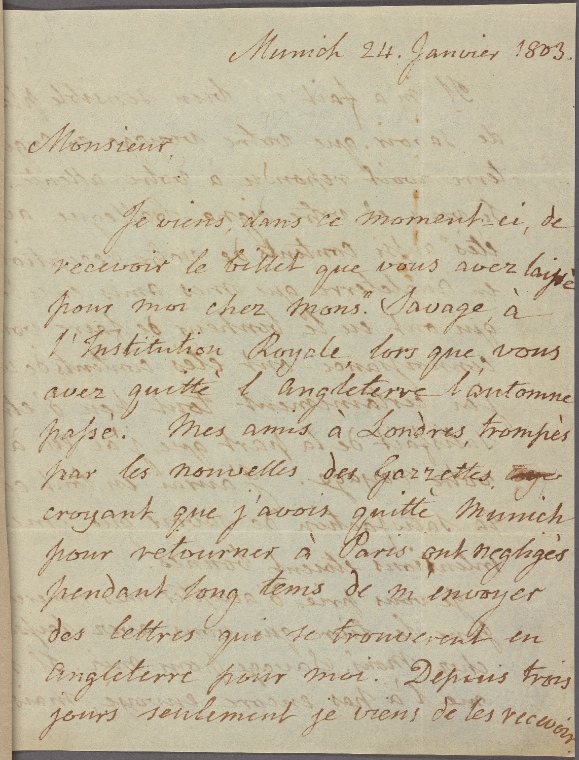 Munich 24. Janvier 1803.
Monsieur
Je viens, dans ce moment-ci, de
recevoir le billet que vous avez laissè
pour moi chez Monsr. Savage, à
l'Institution Royale lors que vous
avez quittè l'Angleterre l'automne
passe. Mes amis à Londres, trompès
par les nouvelles des Gazzettes,
croyant que j'avois quittè Munich
pour retourner à Paris ont negligès
pendant long tems de m'envoyer
des lettres qui se trouverent en
Angleterre pour moi. Depuis trois
jours seulement je viens de les recevoir.